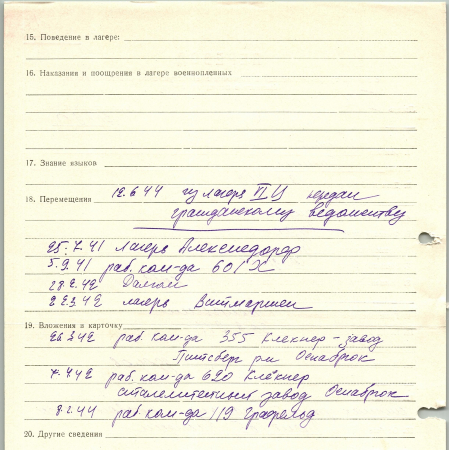 15. Поведение в лагере:
16. Наказания и поощрения в лагере военнопленных
17. Знание языков
18. Перемещения 12.6.44 из лагеря VI Ц передан
гражданскому ведомству
25.7.41 лагерь Алексисдорф
5.9.41 раб. ком-да 601 X
28.2.42
22.3.42 лагерь Витмаршен
19. Вложения в карточку
26.3.42 раб. ком-да 355 Клекнер-завод
Оснабрюк
7.4.42 раб. ком-да 620 Клекнер
сталелитейный завод Оснабрюк
8.2.44 раб. ком-да 119
20. Другие сведения